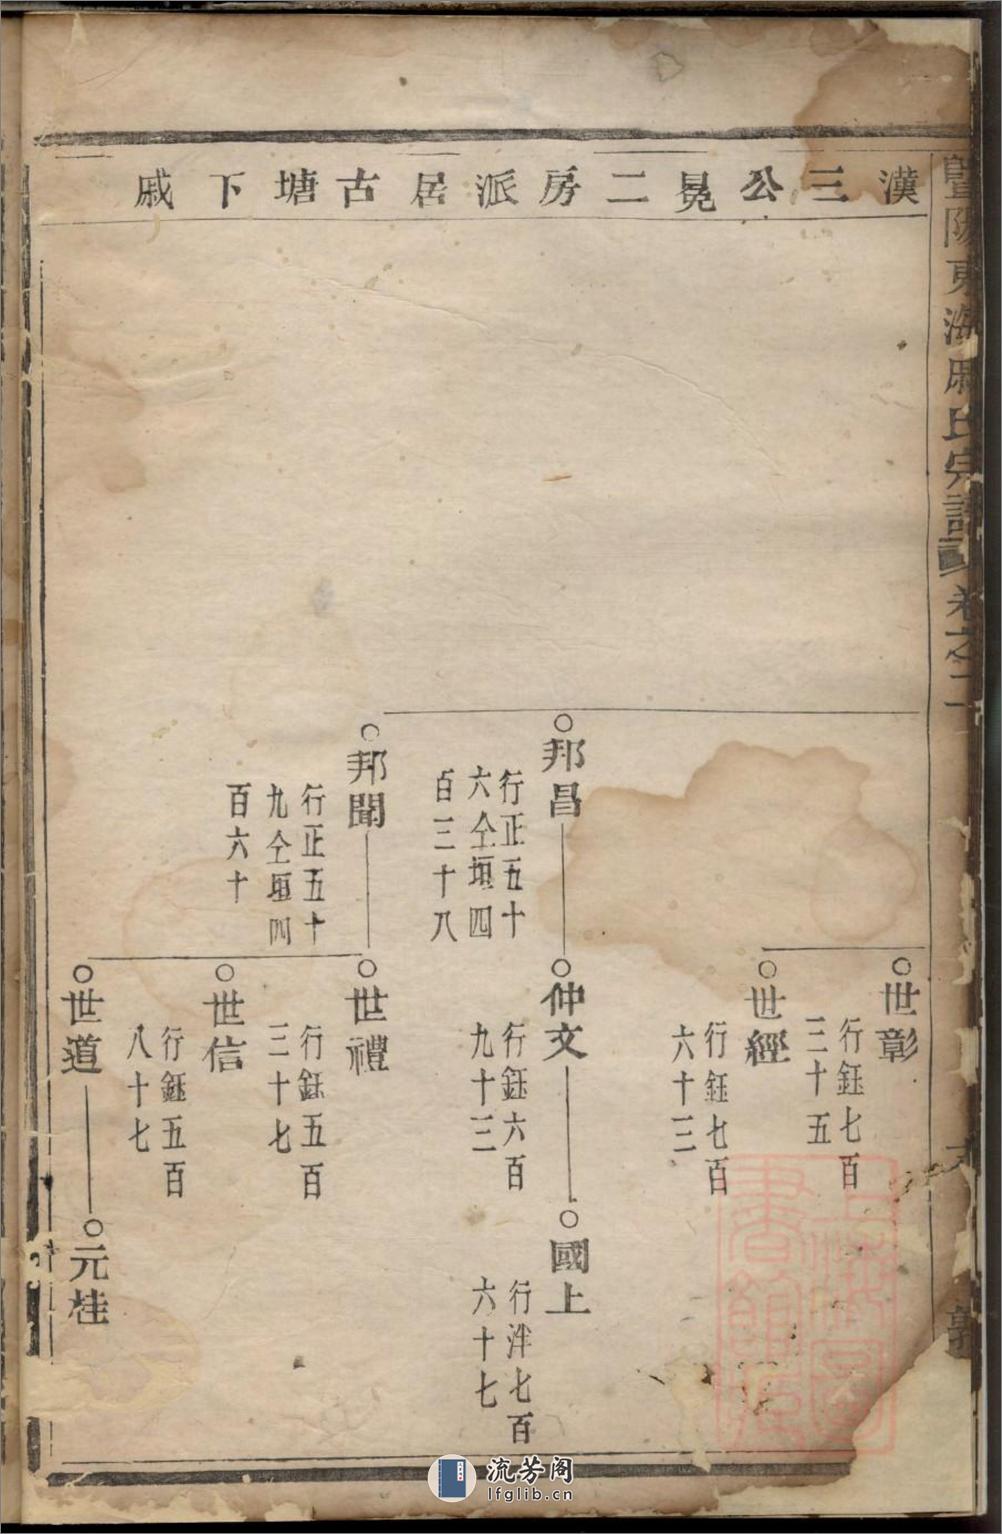 暨陽東海戚氏宗譜
卷之二
漢三公晃二房派居古塘下戚
世彰
行鈺七百
三十五
世經
行鈺七百
六十三
邦昌
行正五十
六仝垣四
百三十八
仲文
行鈺六百
九十三
國上
行泮七百
六十七
邦聞
行正五十
九仝垣四
百六十
世禮
行鈺五百
三十七
世信
行鈺五百
八十七
世道
元桂
上海圖書館藏
流芳阁
lfglib.cn